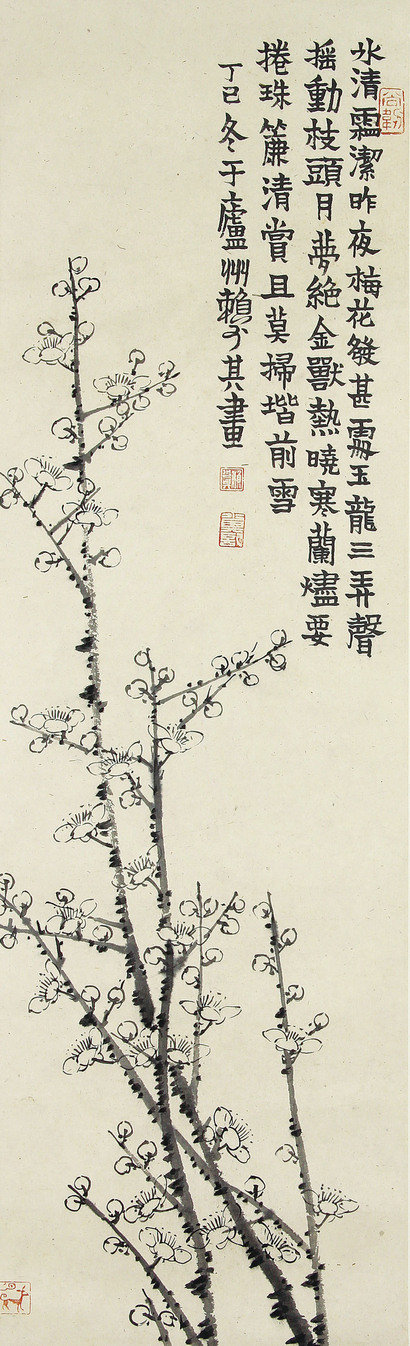 冰清霜潔昨夜梅花發甚霱玉龍三弄聲
搖動枝頭月夢絕金獸熱曉寒蘭燼要
捲珠簾清賞且莫掃堦前雪
丁巳冬于廬州賴少其畫